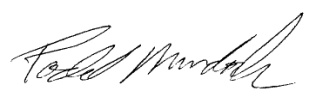 Todd Murdock